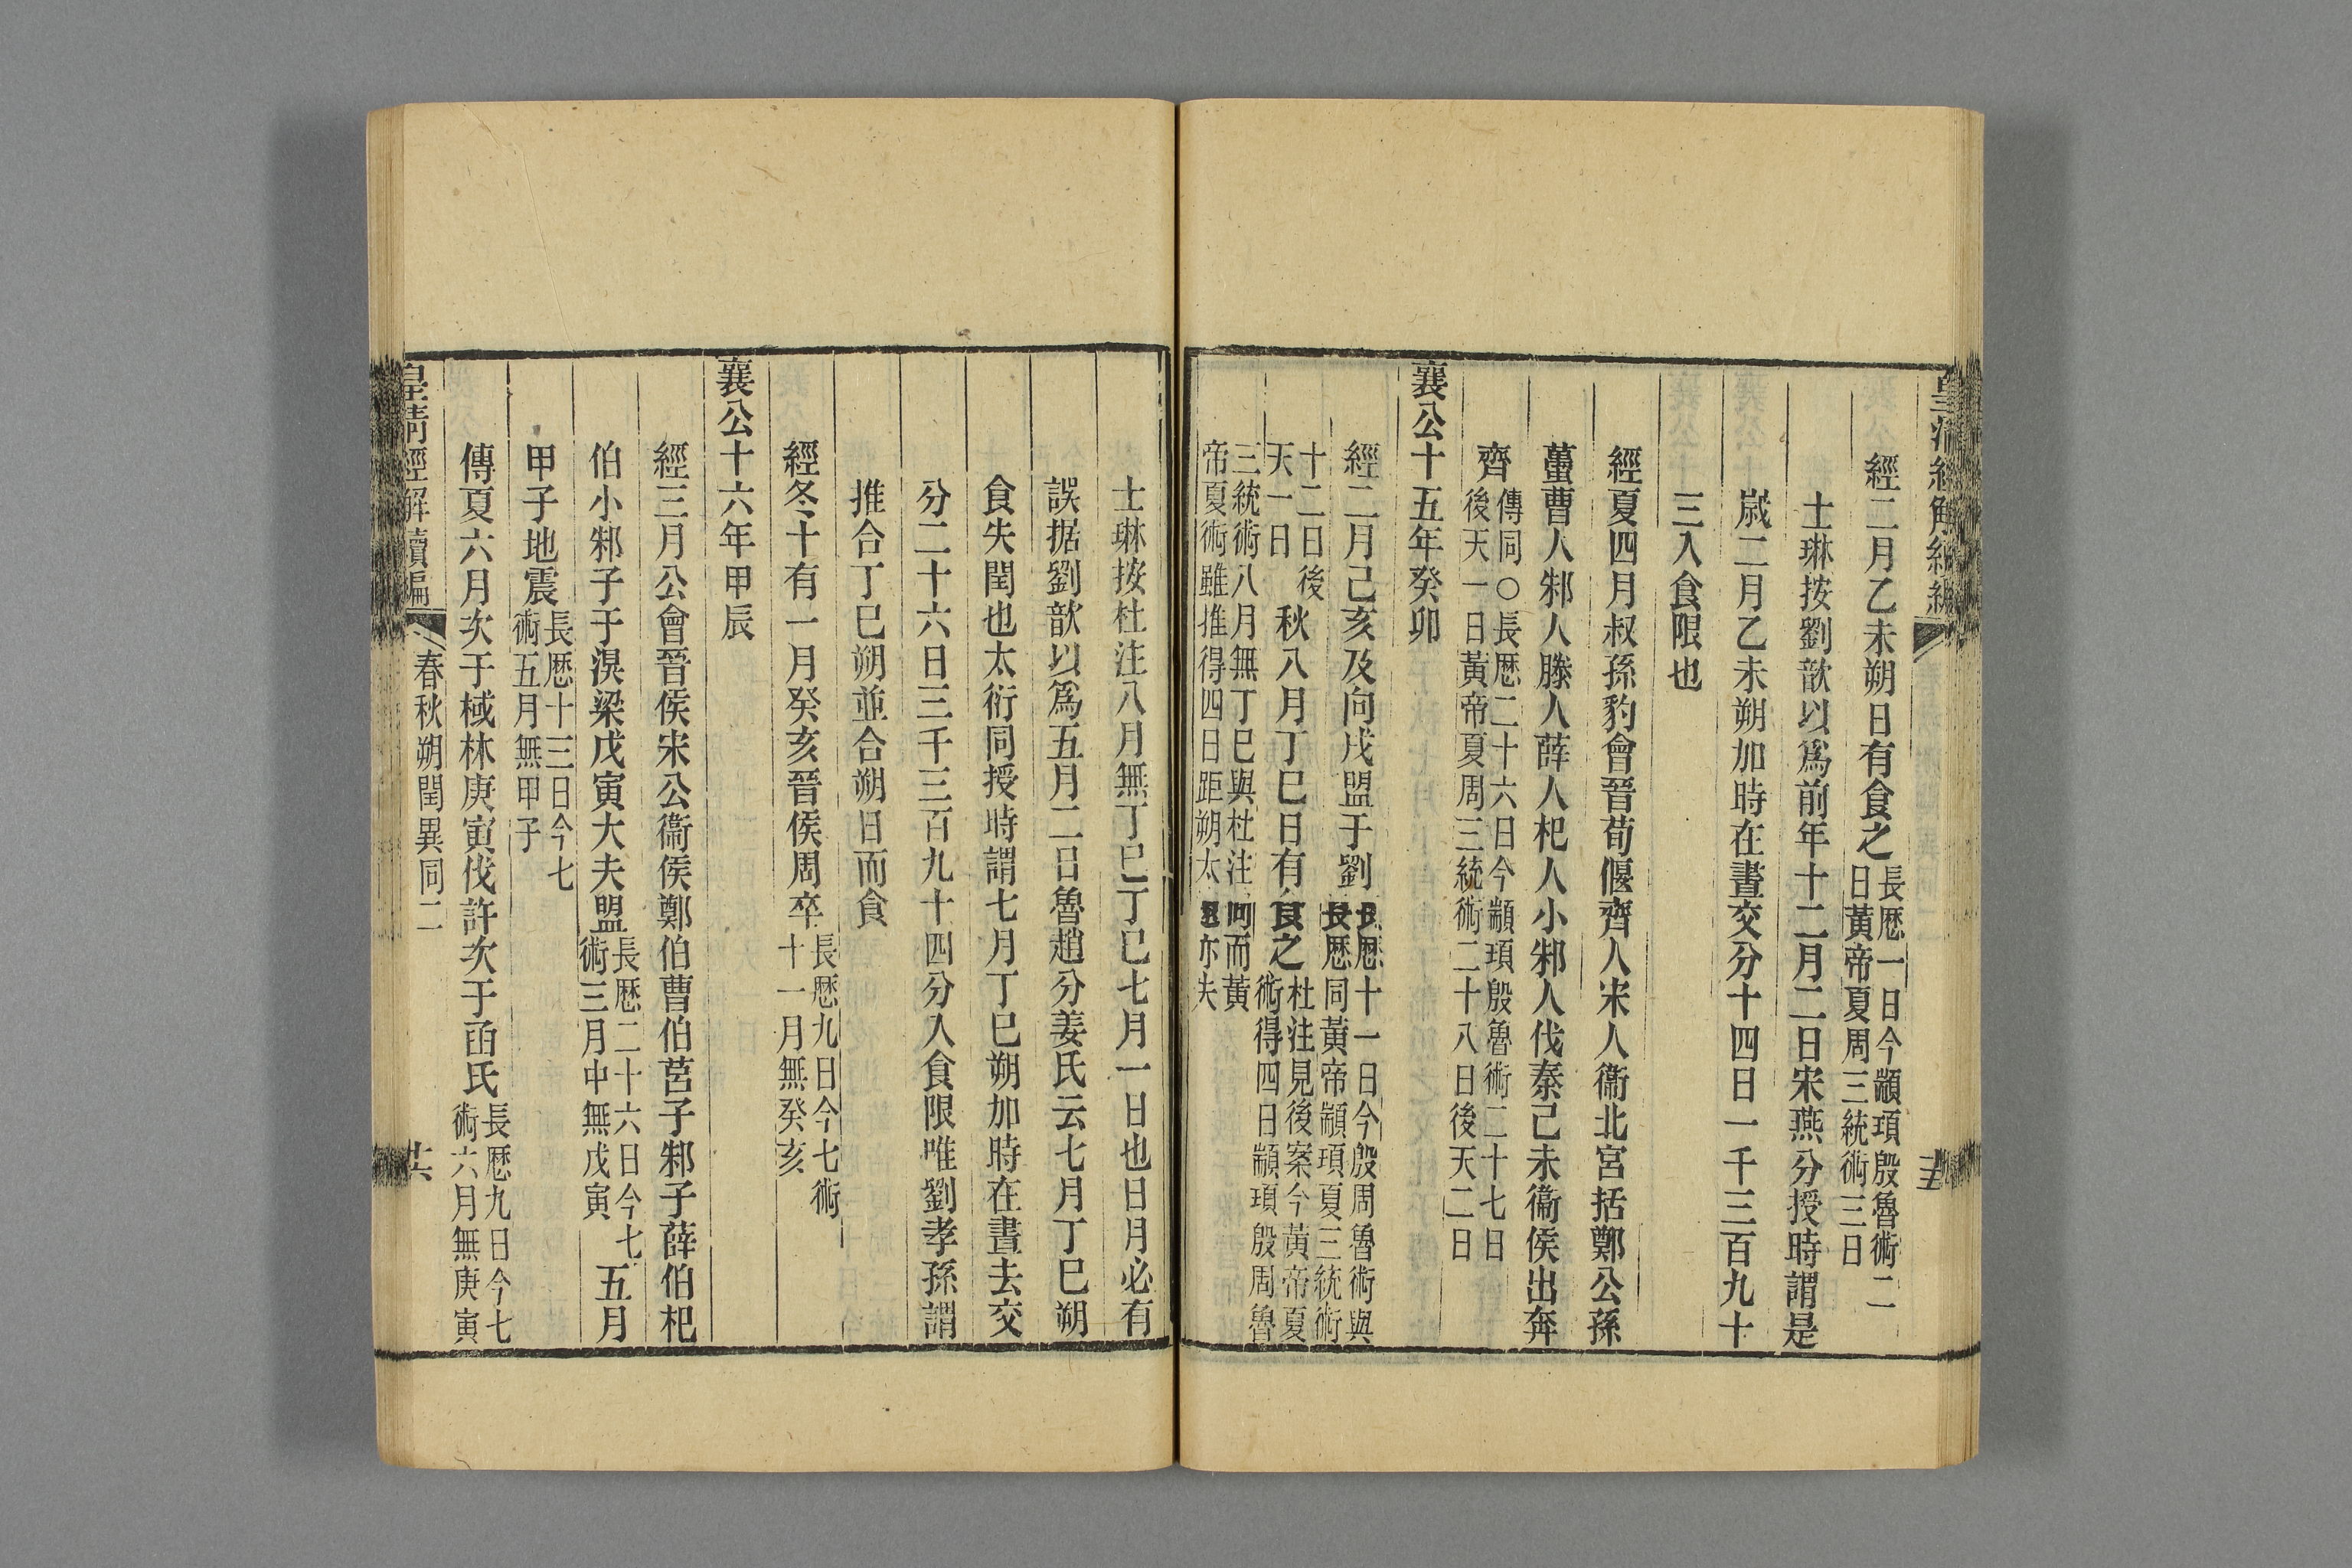 經二月乙未朔日有食之長厯一日今顓頊殷魯術二日黃帝夏周三統術三日
士琳按劉歆以爲前年十二月二日宋燕分授時謂是
歲二月乙未朔加時在晝交分十四日一千三百九十
三入食限也
經夏四月叔孫豹會晉荀偃齊人宋人衞北宮括鄭公孫
蠆曹人邾人滕人薛人杞人小邾人伐秦己未衞侯出奔
齊傳同○長厯二十六日今顓頊殷魯術二十七日後天一日黃帝夏周三統術二十八日後天二日
襄公十五年癸卯
經二月己亥及向戌盟于劉長厯十一日今殷周魯術與長厯同黃帝顓頊夏三統術
十二日後天一日秋八月丁巳日有食之杜注見後案今黃帝夏術得四日顓頊殷周魯
三統術八月無丁巳與杜注同而黃帝夏術雖推得四日距朔太遠亦失
士琳按杜注八月無丁巳丁巳七月一日也日月必有
誤据劉歆以爲五月二日魯趙分姜氏云七月丁巳朔
食失閏也太衍同授時謂七月丁巳朔加時在晝去交
分二十六日三千三百九十四分入食限唯劉孝孫謂
推合丁巳朔並合朔日而食
經冬十有一月癸亥晉侯周卒長厯九日今七術十一月無癸亥
襄公十六年甲辰
經三月公會晉侯宋公衞侯鄭伯曹伯莒子邾子薛伯杞
伯小邾子于湨梁戊寅大夫盟長厯二十六日今七術三月中無戊寅五月
甲子地震長厯十三日今七術五月無甲子
傳夏六月次于棫林庚寅伐許次于函氏長厯九日今七術六月無庚寅
皇清經解續編 春秋朔閏異同二